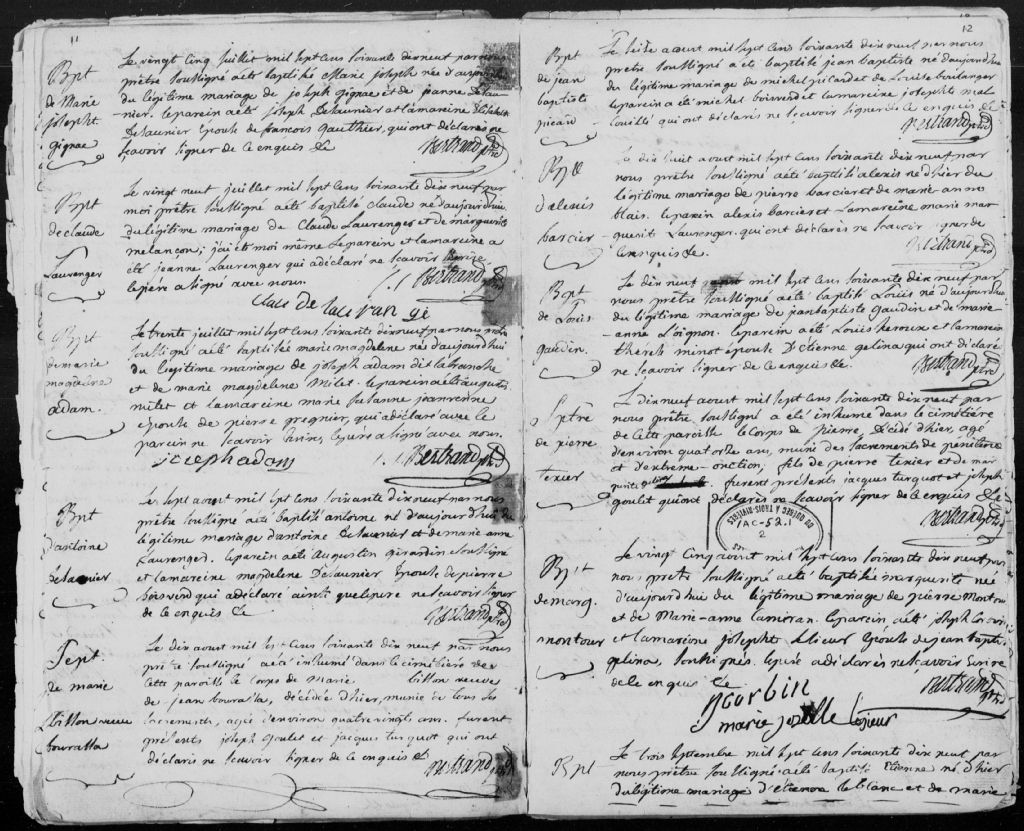 11
Bpt
de Marie
josepht
gignac
Le vingt cinq juillet mil sept cens soixante dix neuf par nous
prêtre soussigné a été baptisé Marie joseph né d'aujourdhui
du légitime mariage de joseph gignac et de jeanne Delau-
nier. le parein a été joseph Delaunier et la mareine
Delaunier Epouse de francois Gauthier, qui ont déclarés ne
scavoir signer de ce enquis &c
Bertrand ptre
Bpt
de claude
Laurenger
Le vingt neuf juillet mil sept cens soixante dix neuf par
moi prêtre soussigné a été baptisé claude né d'aujourdhui
du légitime mariage de Claude Laurenger et de marguerite
melançon; j'ai été moi même le parein et la mareine a
été jeanne Laurenger qui a déclaré ne scavoir
le père a signé avec nous.
Bertrand ptre
Bpt
de marie
magdeleine
adam.
Le trente juillet mil sept cens soixante dix neuf par nous
soussigné a été baptisée marie magdelene née d'aujourdhui
du legitime mariage de joseph adam dit laranche
et de marie magdelene Milet. le parein a été augustin
milet et la mareine marie susanne
epouse de pierre pregnier, qui a déclaré avec le
parein ne scavoir écrire, le père a signé avec nous.
joseph adam
Bertrand ptre
Bpt
d'antoine
Delaunier
Le sept aoust mil sept cens soixante dix neuf par nous
prêtre soussigné a été baptisé antoine né d'aujourdhui du
légitime mariage d'antoine Delaunier et de marie anne
Laurenger. le parein a été Augustin girardin soussigné
et la mareine magdelene Delaunier Epouse de pierre
boisverd qui a déclaré ainsi que le père ne scavoir signer
de ce enquis &c
Bertrand ptre
Sept.
de marie
bisson veuve
bourassa
Le dix aoust mil sept cens soixante dix neuf par nous
prêtre soussigné a été inhumé dans le cimetière de
cette paroisse le corps de marie bisson veuve
de jean bourassa, décédée d'hier, munie de tous les
sacrements, agée d'environ quatre vingts ans. furent
présents joseph Goulet et jacques turquot qui ont
déclarés ne scavoir signer de ce enquis &c
Bertrand ptre
12
Bpt
de jean
baptiste
picard
Le seize aoust mil sept cens soixante dix neuf par nous
prêtre soussigné a été baptisé jean baptiste né d'aujourdhui
du légitime mariage de michel picard et de Louise boulanger
le parein a été michel boisverd et la mareine josepht mal
bouillé qui ont déclaris ne scavoir signer de ce enquis &c
Bertrand ptre
Bptt
d'alexis
barcier
Le dix huit aoust mil sept cens soixante dix neuf par
nous prêtre soussigné a été baptisé alexis né d'hier du
légitime mariage de pierre barcier et de marie anne
blais. le parein alexis barcier et La mareine marie mar-
guerite Laurenger. qui ont déclarés ne scavoir signer de
ce enquis &c.
Bertrand ptre
Bpt
de Louis
gaudin.
Le dix neuf aoust mil sept cens soixante dix neuf par
nous prêtre soussigné a été baptisé Louis né d'aujourdhui
du légitime mariage de jean baptiste Gaudin et de marie-
anne Loignon. le parein a été Louis heroux et la mareine
thérèse minot épouse D'étienne gelina qui ont déclaré
ne scavoir signer de ce enquis &c.
Bertrand ptre
Sptre
de pierre
texier
Le dix neuf aoust mil sept cens soixante dix neuf par
nous prêtre soussigné a été inhumé dans le cimetière
de cette paroisse le corps de pierre, Décédé d'hier, agé
d'environ quatorze ans, muni des sacrements de pénitence
et d'extreme-onction, fils de pierre texier et de mar
guerite furent présents jacques turquot et joseph
goulet qui ont déclarés ne scavoir signer de ce enquis &c
Bertrand ptre
DU QUEBEC A TROIS-RIVIERES
JAC-52.1
2
Bpt
de marg.
montour
Le vingt cinq aoust mil sept cens soixante dix neuf par
nous prêtre soussigné a été baptisée marguerite née
d'aujourdhui du légitime mariage de pierre Montour
et de Marie-anne Camoran. le parein a été joseph Corbin
et la mareine josephte Lesieur Epouse de jean bapt.
gelina, soussignés. le père a déclarés ne scavoir Ecrire
de ce enquis &c
Bertrand ptre
J Corbin
marie joselle lesieur
Bpt
Le trois septembre mil sept cens soixante dix neuf par
nous prêtre soussigné a été baptisé Etienne né d'hier
du légitime mariage d'etienne le blanc et de marie